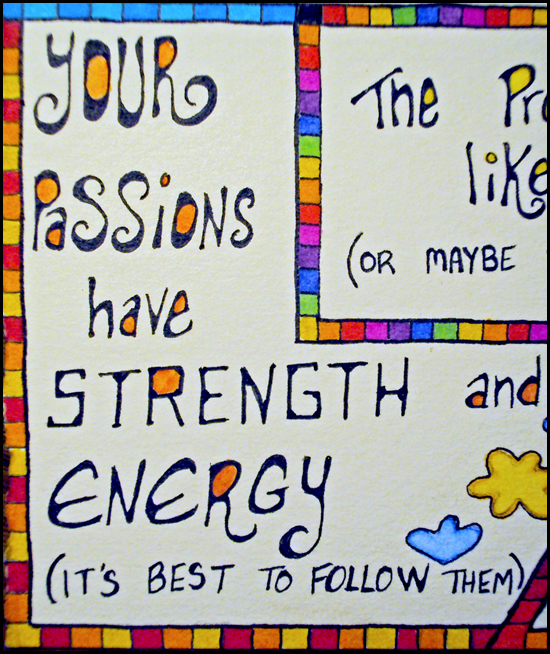 YOUR
PaSSiONS
have
STRENGTH and
ENERGY
(IT'S BEST TO FOLLOW THEM)
The
like
(OR MAYBE